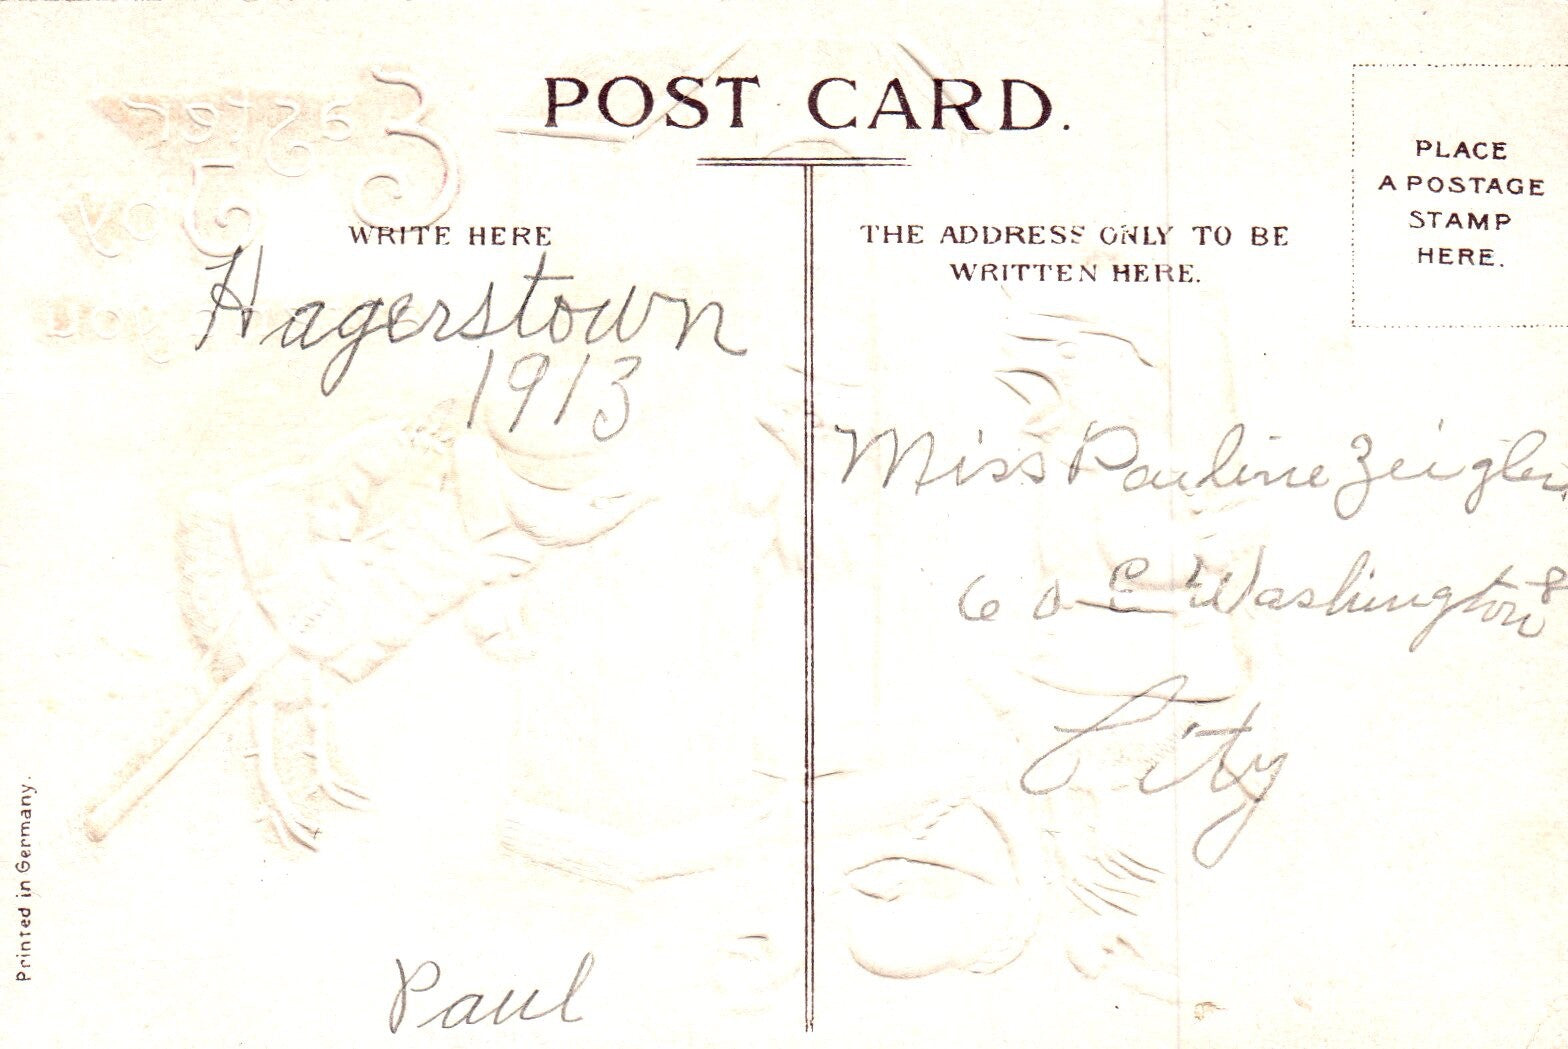 POST CARD.
WRITE HERE
THE ADDRESS ONLY TO BE
WRITTEN HERE.
PLACE
A POSTAGE
STAMP
HERE.
Hagerstown
1913
Miss Pauline Zeigler
60 E Washington
City
Paul
Printed in Germany.